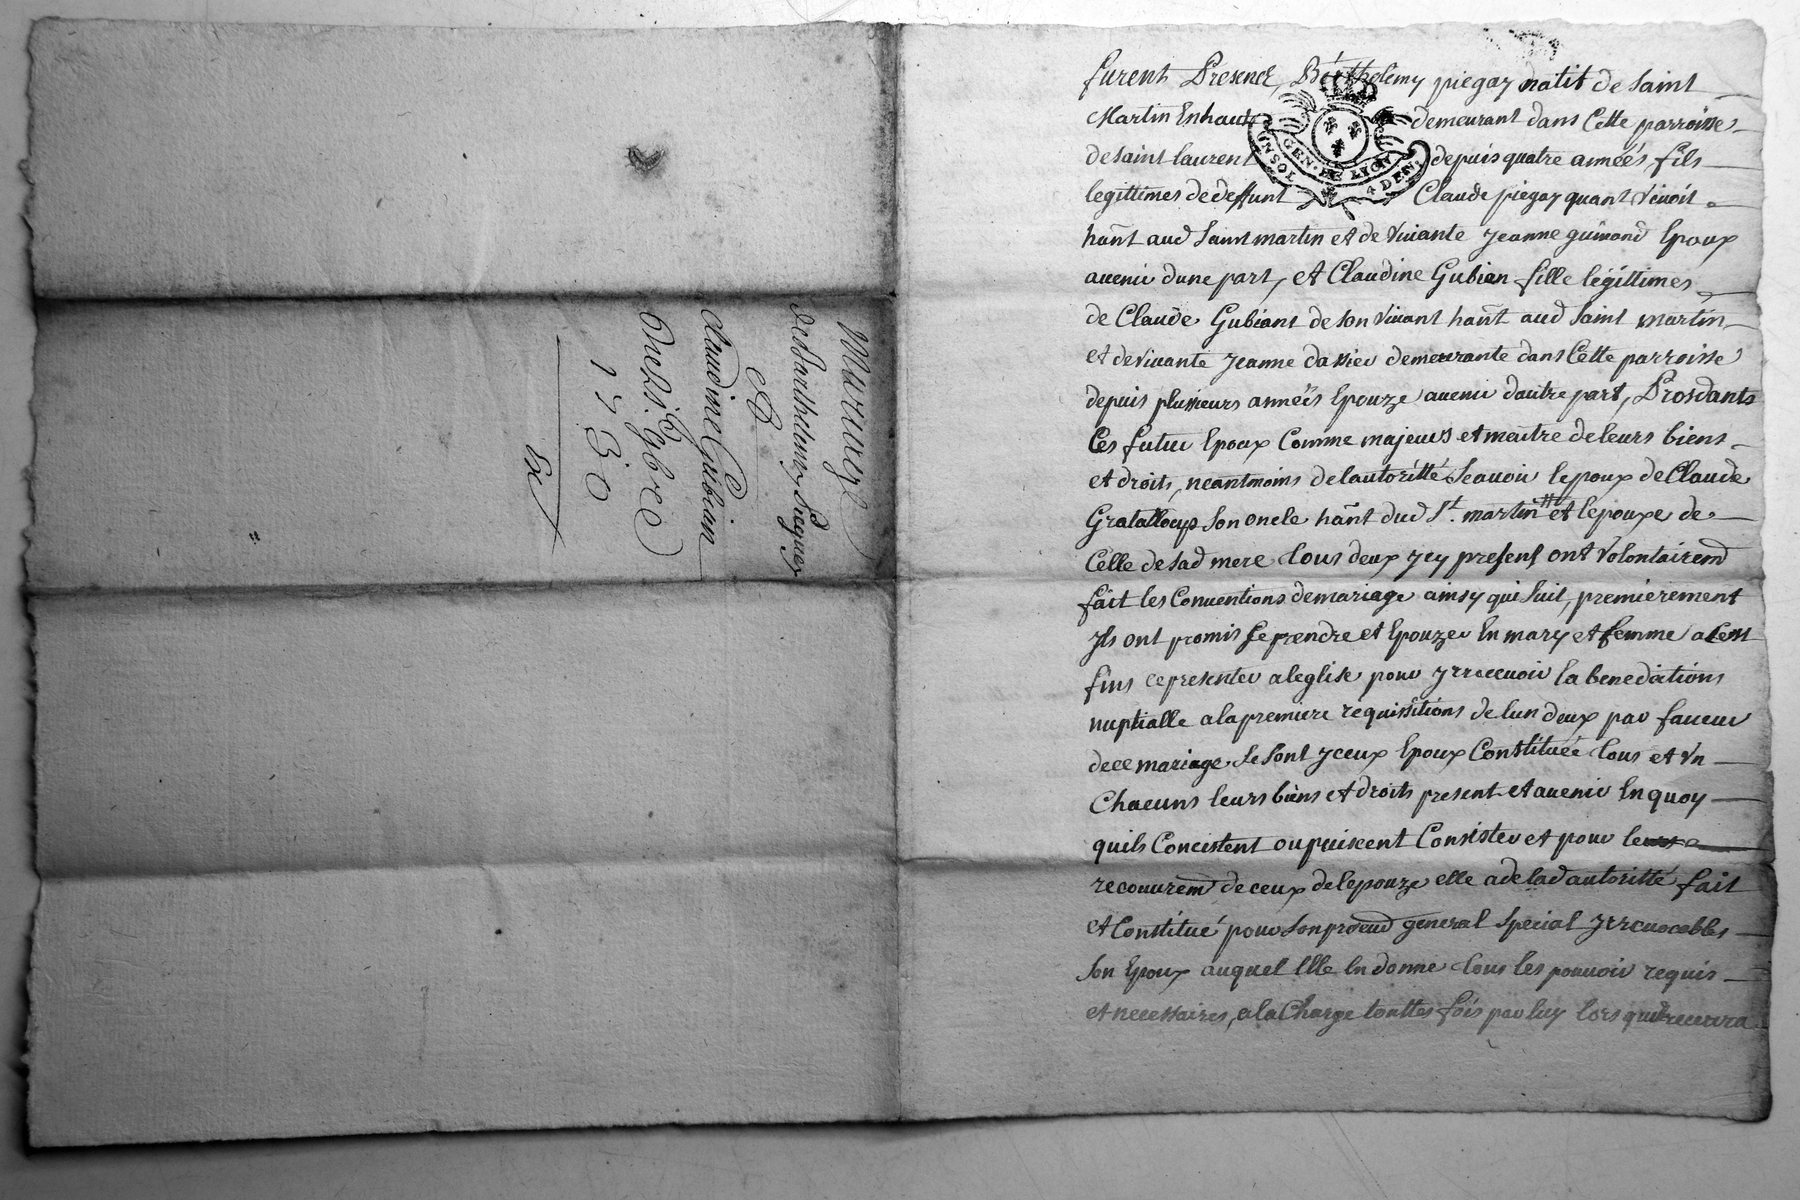 Mariage
de Barthelemy pieguay
Et
claudine Gubian
Du 5.e 9bre
1750
Ex
furent Presend, Bérthelémy piegay natif de saint
Martin Enhaut demeurant dans Cette parroisse
de saint laurent depuis quatre années, fils
legittimes de deffunt Claude piegay quant vivoit
hañt aud saint martin et de vivante jeanne guinand Epoux
avenir dune part, et Claudine Gubian fille légittimes
de Claude Gubians de son vivant hañt aud saint martin
et de vivante jeanne dassier demeurante dans Cette parroisse
depuis plussieurs années Epouze avenir dautre part, Procédants
Ces futur Epoux Comme majeurs et maitre de leurs biens
et droits, neantmoins de lautoritté Scavoir lepoux de Claude
Grataloup son oncle hañt dud S.t martin et lepouxe de
Celle de sad mere tous deux jcy present ont volontairemd
fait les Conventions de mariage ainsy qui suit, premiérement
jls ont promis se prendre et Epouzer En mary et femme a Cest
fins ce presenter a leglise pour y rrecevoir la benedòitions
nuptialle a la premiere requissitions de lun deux par faveur
de ce mariage se sont jceux Epoux Constituée tous et un
Chacuns leurs biens et droits present et avenir En quoy
quils Concistent ou puiscent Consister et pour leurs
recouvremd de ceux de lepouze elle a de lad autoritté fait
et Constitué pour son procud general special jrrevocables
son Epoux auquel Elle En donne tous les pouvoir requis
et necessaires, a la Charge touttes fois par luy lors quil recevra
GEN. DE LYON
UN SOL 4 DEN.